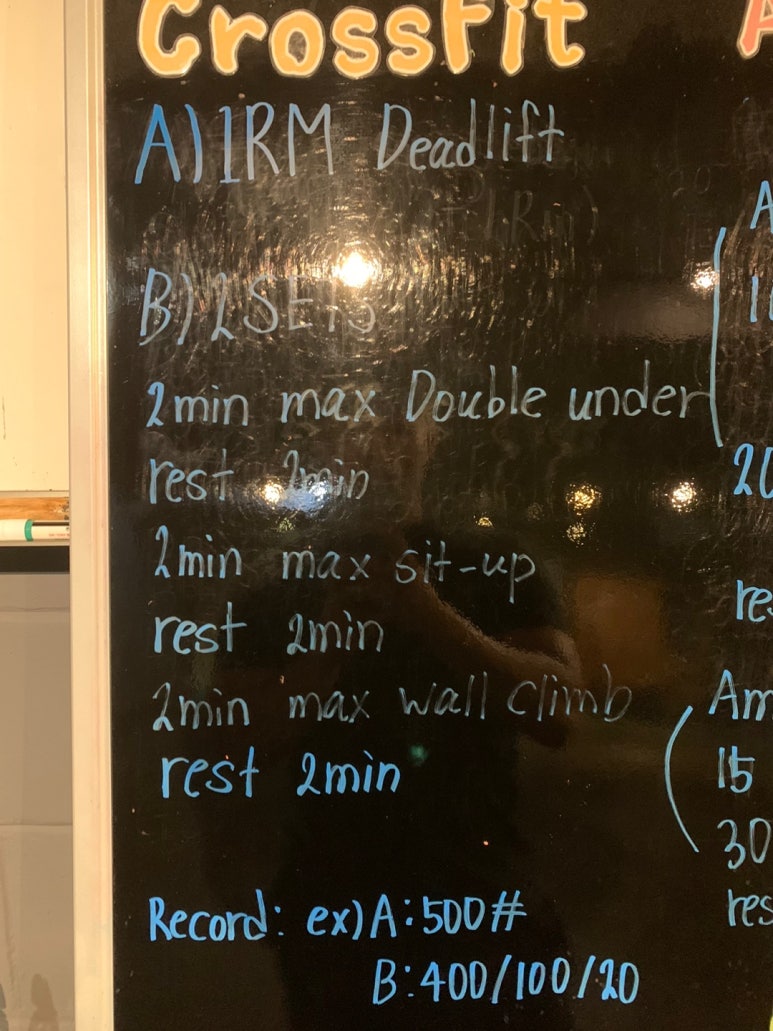 CrossFit
A) 1RM Deadlift
B) 2 SETS
2min max Double under
rest 2min
2min max sit-up
rest 2min
2min max wall climb
rest 2min
Record: ex) A: 500#
B: 400/100/20
A
20
res
Am
15
30
res